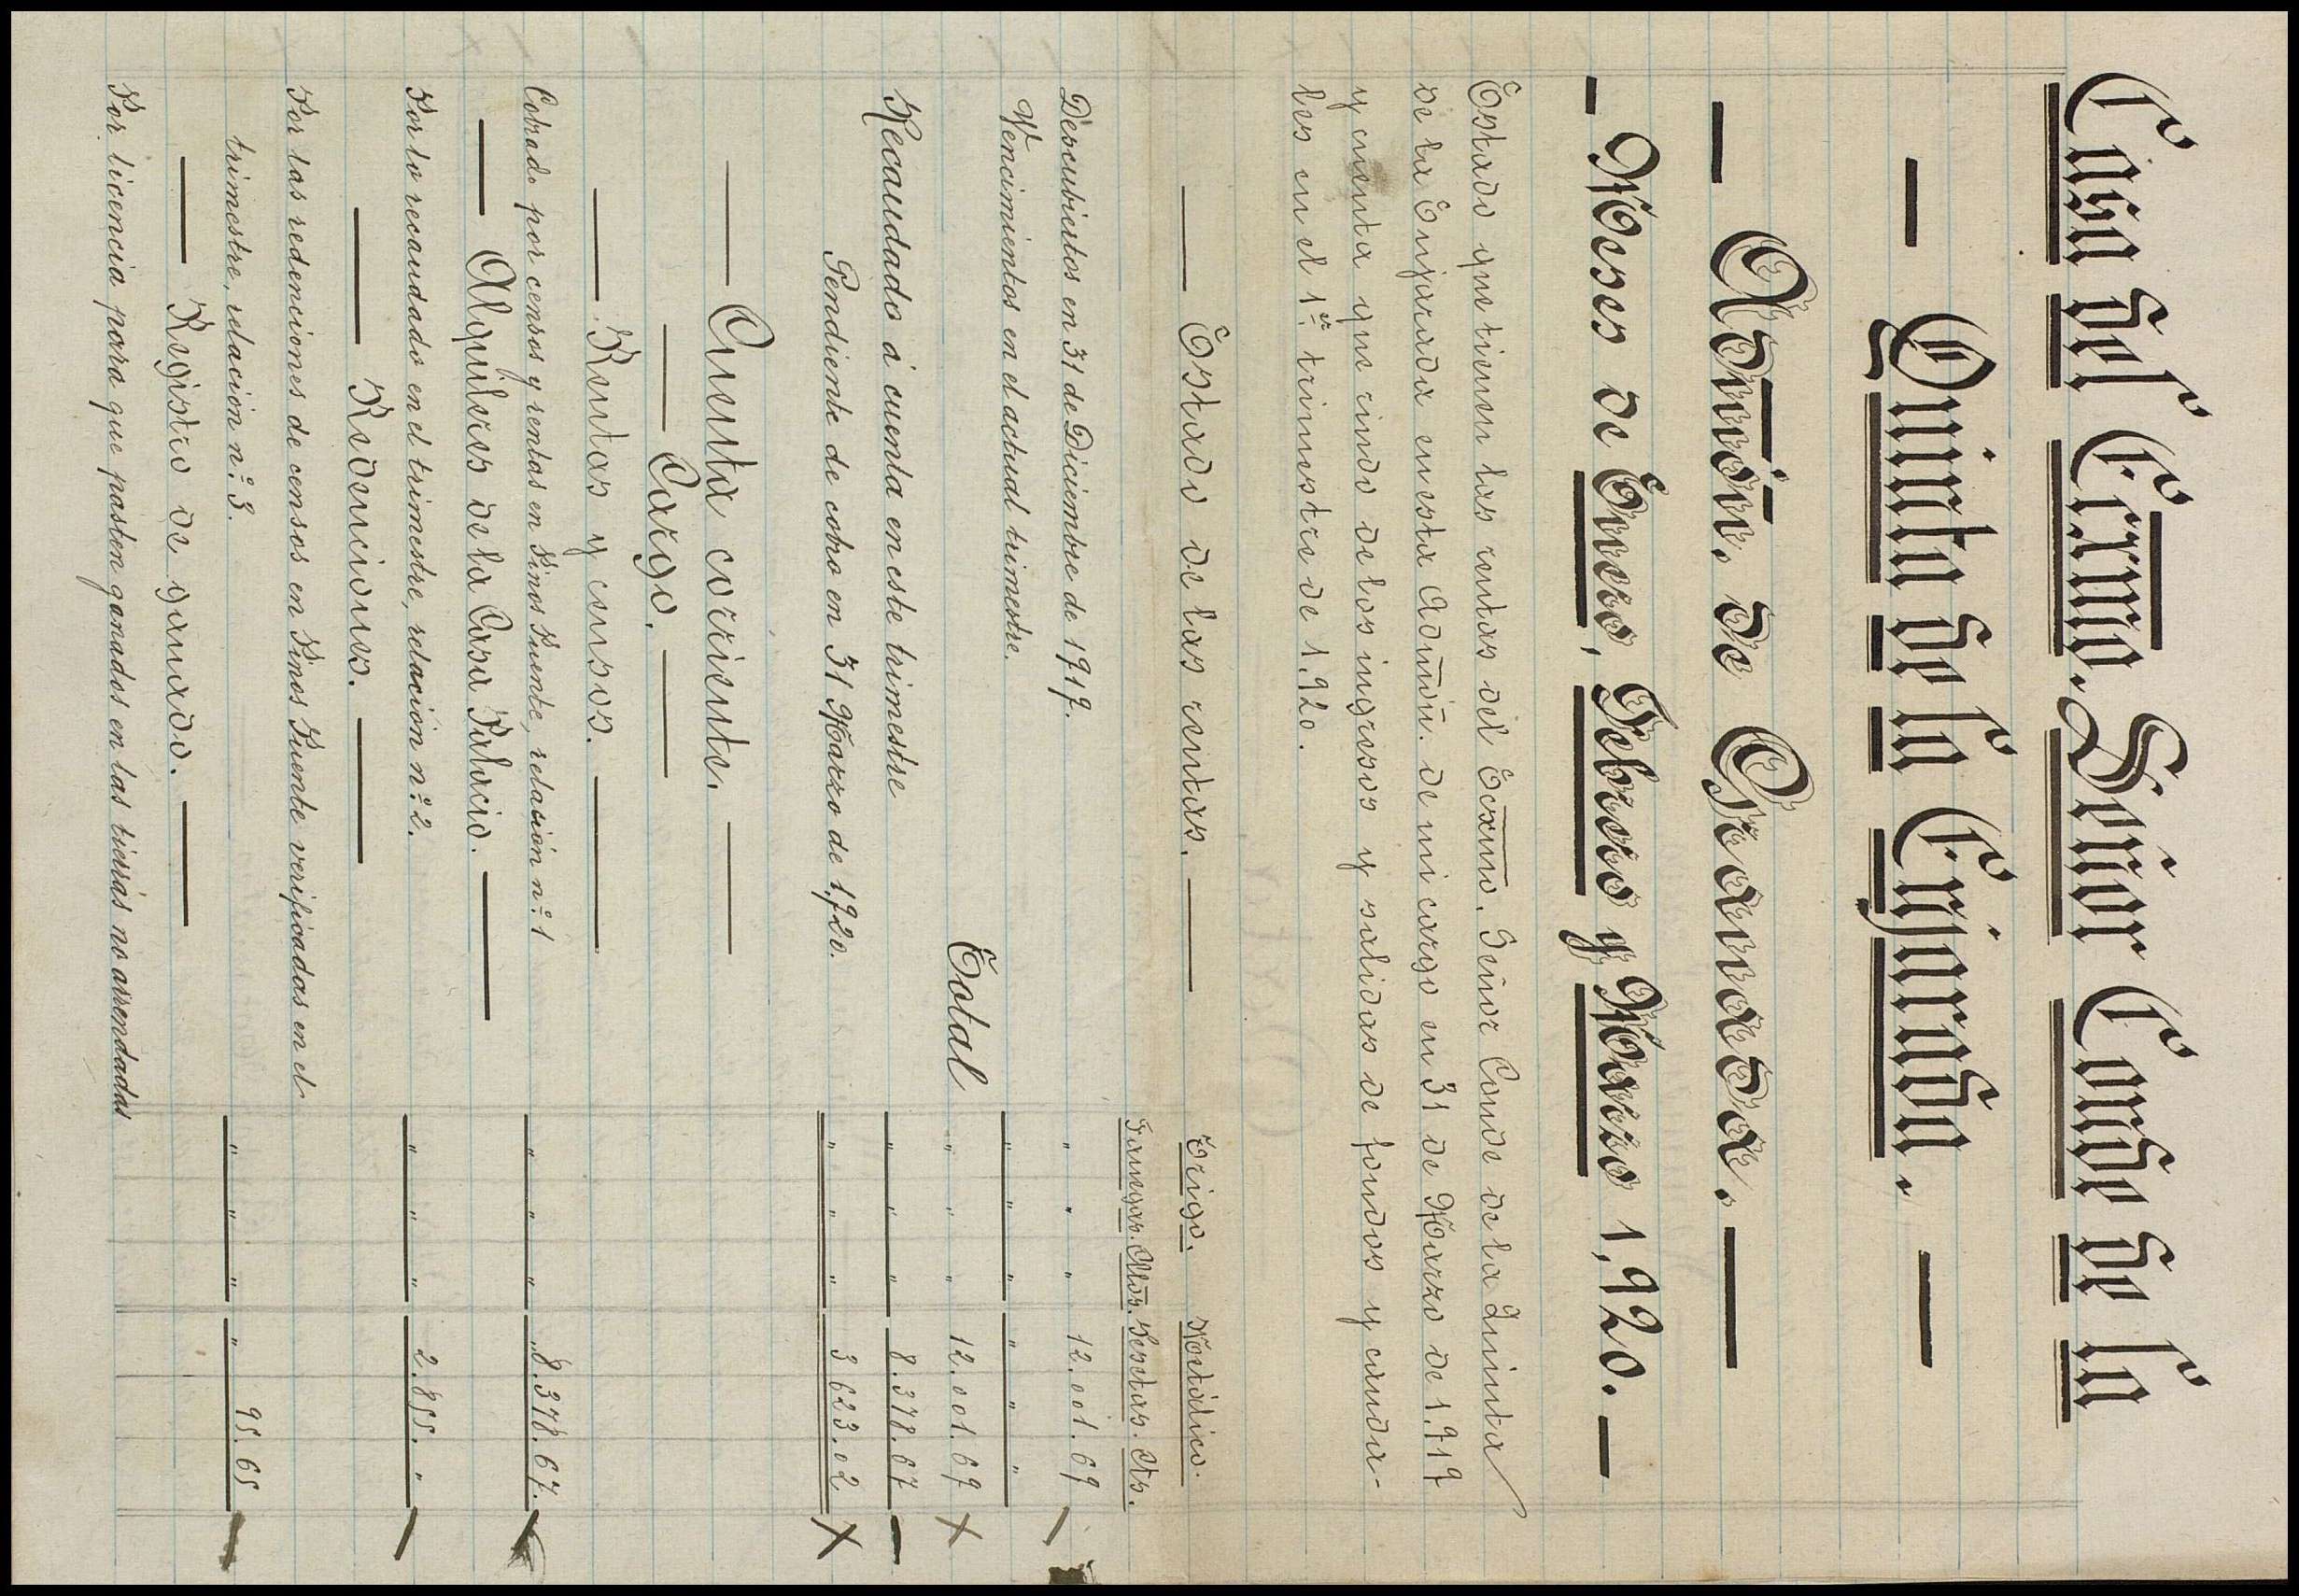 Casa del Excmo. Señor Conde de la
— Quinta de la Enjarada. —
— Admón. de Granada. —
— Meses de Enero, Febrero y Marzo 1,920. —
Estado que tienen las rentas del Excmo. Señor Conde de la Quinta
de la Enjarada en esta Admón. de mi cargo en 31 de Marzo de 1.919
y cuenta que rindo de los ingresos y salidas de fondos y cauda-
les en el 1er. trimestre de 1.920.
— Estado de las rentas. — Trigo. Metálico.
Fanegas. Clds. Pesetas. Cts.
Descubiertos en 31 de Diciembre de 1919. " " " 12.001.69
Vencimientos en el actual trimestre. " " " " " "
Total " " " 12.001.69
Recaudado á cuenta en este trimestre " " " 8.378.67
Pendiente de cobro en 31 Marzo de 1,920. " " " 3 623.02
— Cuenta corriente. —
— Cargo. —
— Rentas y censos. —
Cobrado por censos y rentas en Pinos Puente, relación nº. 1 " " " 8.378.67.
— Alquileres de la Casa Palacio. —
Por lo recaudado en el trimestre, relación nº. 2. " " " 2.855. "
— Redenciones. —
Por las redenciones de censos en Pinos Puente verificadas en el
trimestre, relación nº. 3. " " " " 95.65
— Registro de ganado. —
Por licencia para que pasten ganados en las tierras no arrendadas